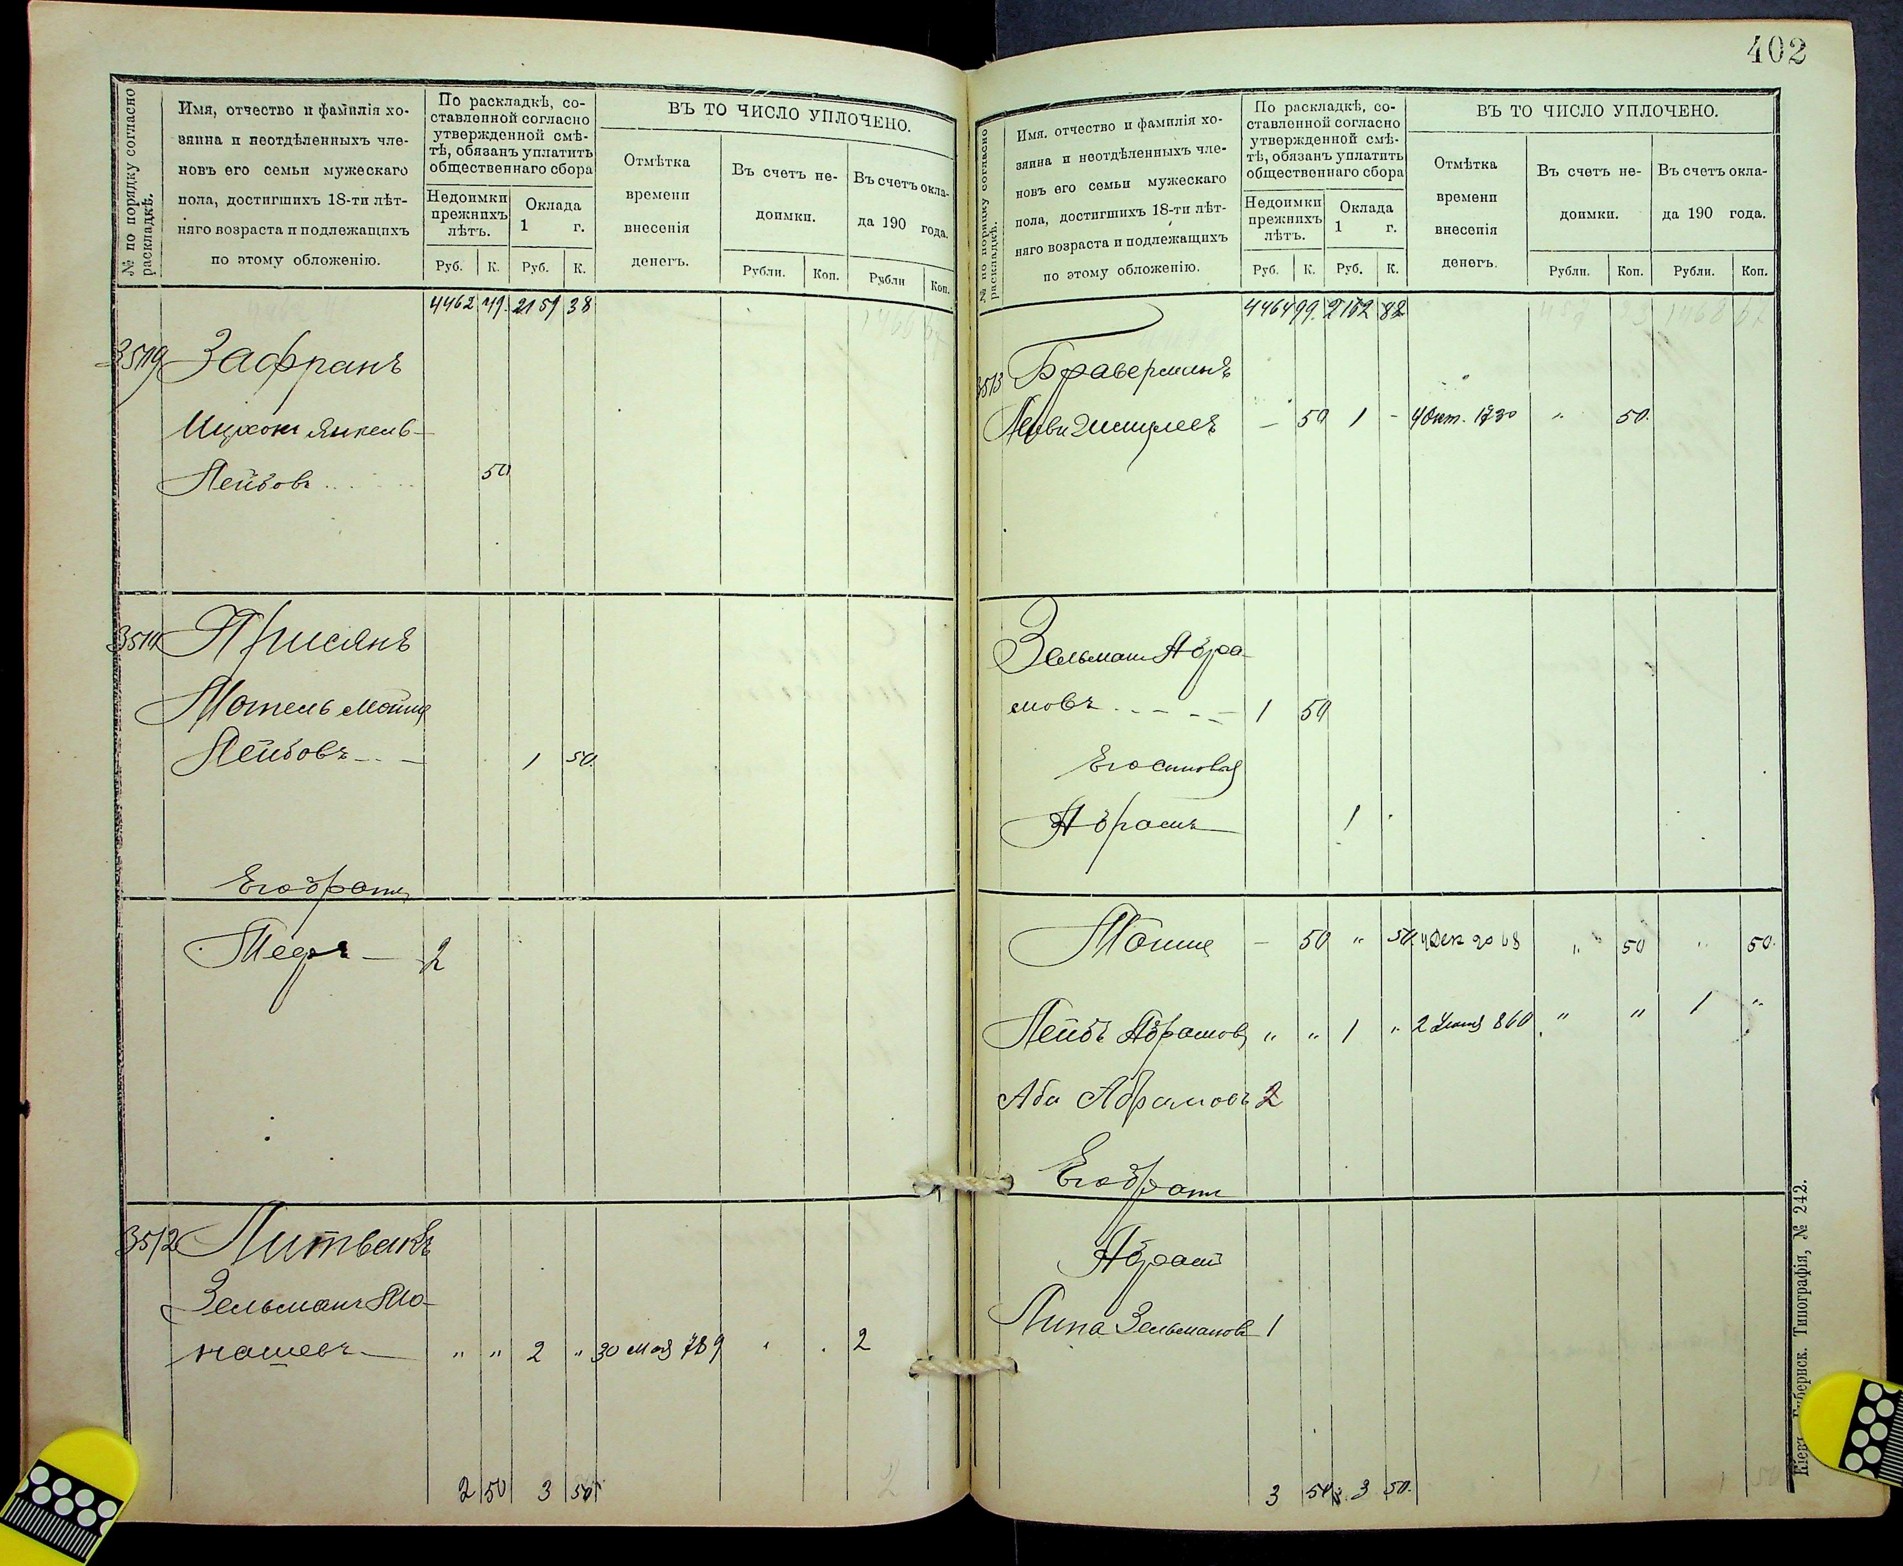 402
№ по порядку согласно раскладкѣ.
Имя, отчество и фамилія хо-
зяина и неотдѣленныхъ чле-
новъ его семьи мужескаго
пола, достигшихъ 18-ти лѣт-
няго возраста и подлежащихъ
по этому обложенію.
По раскладкѣ, со-
ставленной согласно
утвержденной смѣ-
тѣ, обязанъ уплатить
общественнаго сбора
Недоимки прежнихъ лѣтъ.
Оклада 1 г.
Руб. К. Руб. К.
ВЪ ТО ЧИСЛО УПЛОЧЕНО.
Отмѣтка времени внесенія денегъ.
Въ счетъ не- доимки.
Въ счетъ окла- да 190 года.
Рубли. Коп. Рубли Коп.
4462 49. 2159 38
Зафранъ
Ицхокъ Янкель-
Лейбовъ 50
Присянъ
Мотель Мошко
Лейбовъ 1 50.
Его братъ
2
3512 Литвакъ
Зельманъ Мо-
нашевъ " " 2 " 30 мая 789 " . 2
2 50 3 50
№ по порядку согласно раскладкѣ.
Имя, отчество и фамилія хо-
зяина и неотдѣленныхъ чле-
новъ его семьи мужескаго
пола, достигшихъ 18-ти лѣт-
няго возраста и подлежащихъ
по этому обложенію.
По раскладкѣ, со-
ставленной согласно
утвержденной смѣ-
тѣ, обязанъ уплатить
общественнаго сбора
Недоимки прежнихъ лѣтъ.
Оклада 1 г.
Руб. К. Руб. К.
ВЪ ТО ЧИСЛО УПЛОЧЕНО.
Отмѣтка времени внесенія денегъ.
Въ счетъ не- доимки.
Въ счетъ окла- да 190 года.
Рубли. Коп. Рубли. Коп.
4464 99. 2162 82
3513 Браверманъ
Лейви Шмулевъ — 50 1 - 4 Окт. 1730 " 50.
Зельманъ Абра-
мовъ 1 50
Его сыновья
Абрамъ 1
Мошко — 50 " 50. " 50 " 50.
Лейбъ Абрамовъ " " 1 " 2 Іюня 860 " " 1 "
Аба Абрамовъ 2
Его братъ
Абрамъ
Липа Зельмановъ 1
3 50 3 50.
Кіевъ. Губернск. Типографія, № 242.